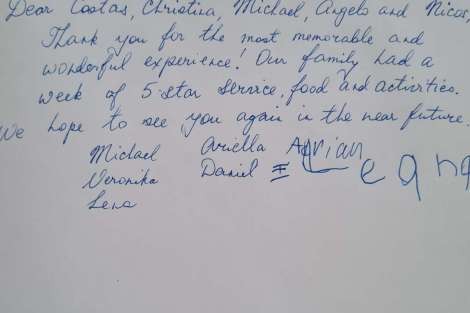 Dear Costas, Christina, Michael, Angelo and Nicos,
Thank you for the most memorable and
wonderful experience! Our family had a
week of 5 star service, food and activities.
We hope to see you again in the near future.
Michael Ariella Adrian
Veronika Daniel
Lena